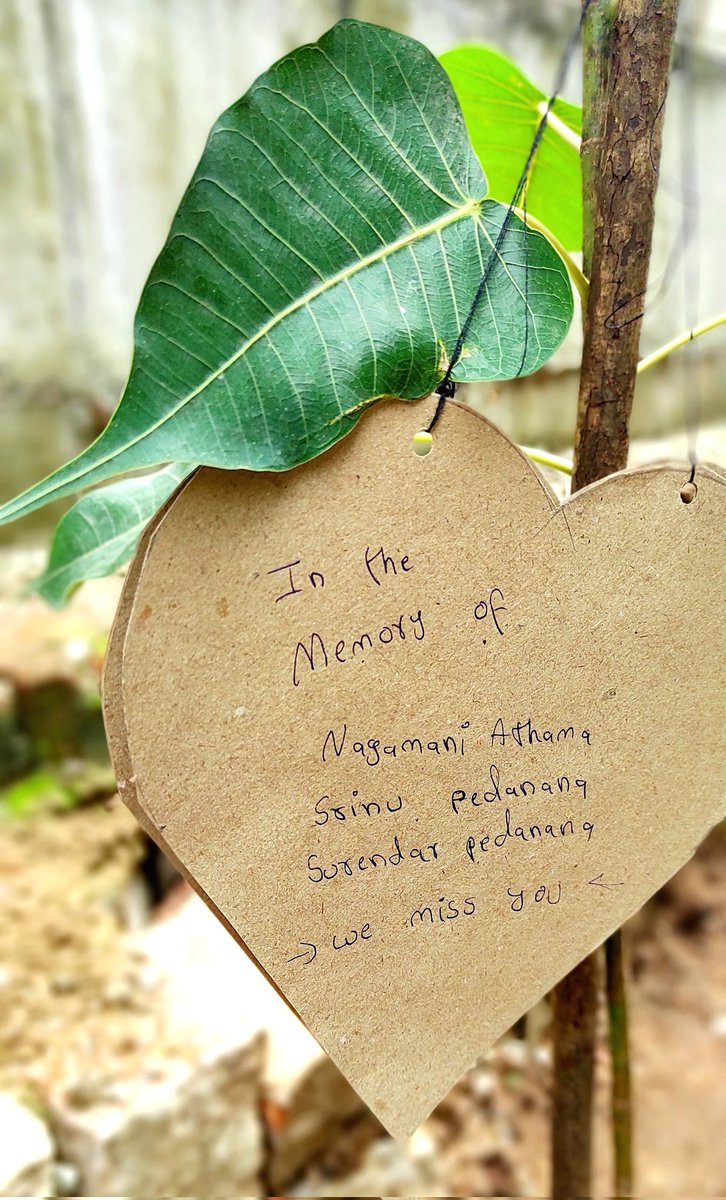 In the
Memory of
Nagamani Athama
Srinu pedanana
Surendar pedanana
→ we miss you ←